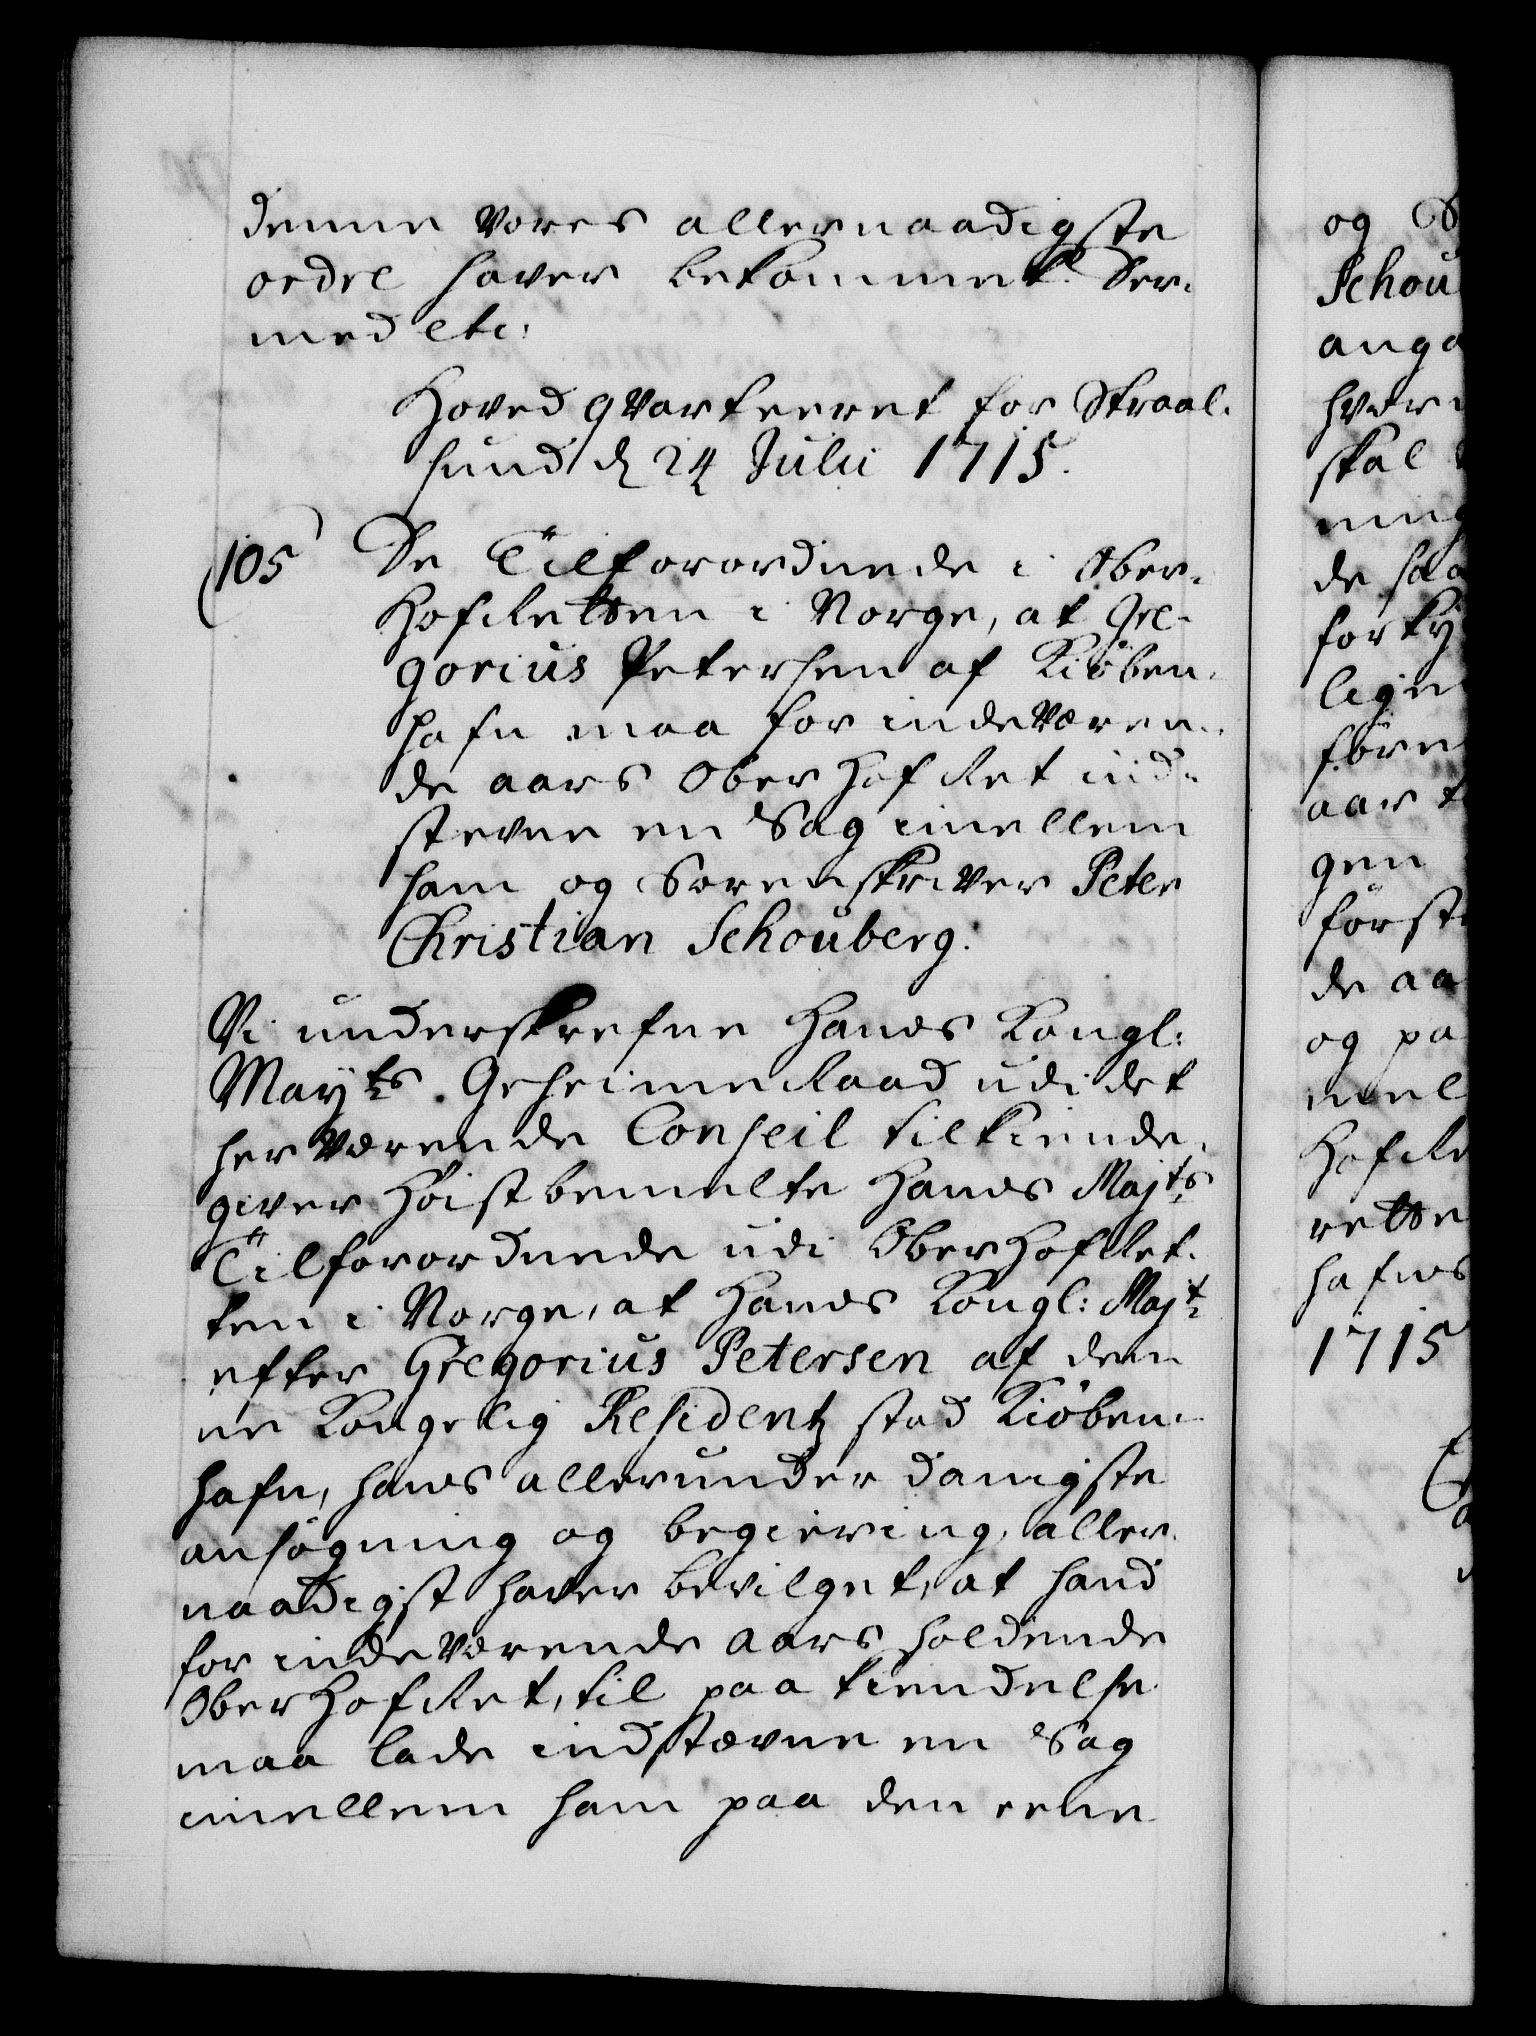 denne vores allernaadigste
ordre haver bekommet. Der-
med etc:
Hoved qvarteeret for Straal-
sund d 24 Julii 1715.
105
De Tilforordnede i Ober-
HofRetten i Norge, at Gre-
gorius Petersen af Kiöben-
hafn maa for indeværen-
de aars OberHofRet ind-
stevne en Sag imellem
ham og Sorenskriver Peter
Christian Schouberg.
Vi underskrefne Hands Kongl:
Mayts GeheimeRaad udi det
herværende Conseil tilkiende-
giver Höistbemelte Hands Majts
Tilforordnede udi OberHofRet-
ten i Norge, at Hands Kongl: Majt
efter Gregorius Petersen af den-
ne Kongelig Residentz stad Kiöben-
hafn, hans allerunderdanigste
ansögning og begiering, aller-
naadigst haver bevilget, at hand
for indeværende aars holdende
OberHofRet, til paa kiendelse
maa lade indstævne en Sag
imellem ham paa den eene
og
Schou
anga
hver
skal
ning
de haa
for ky
lign
fören
aar
gen
förste
de aa
og pa
mel
HofRe
rette
hafns
1715